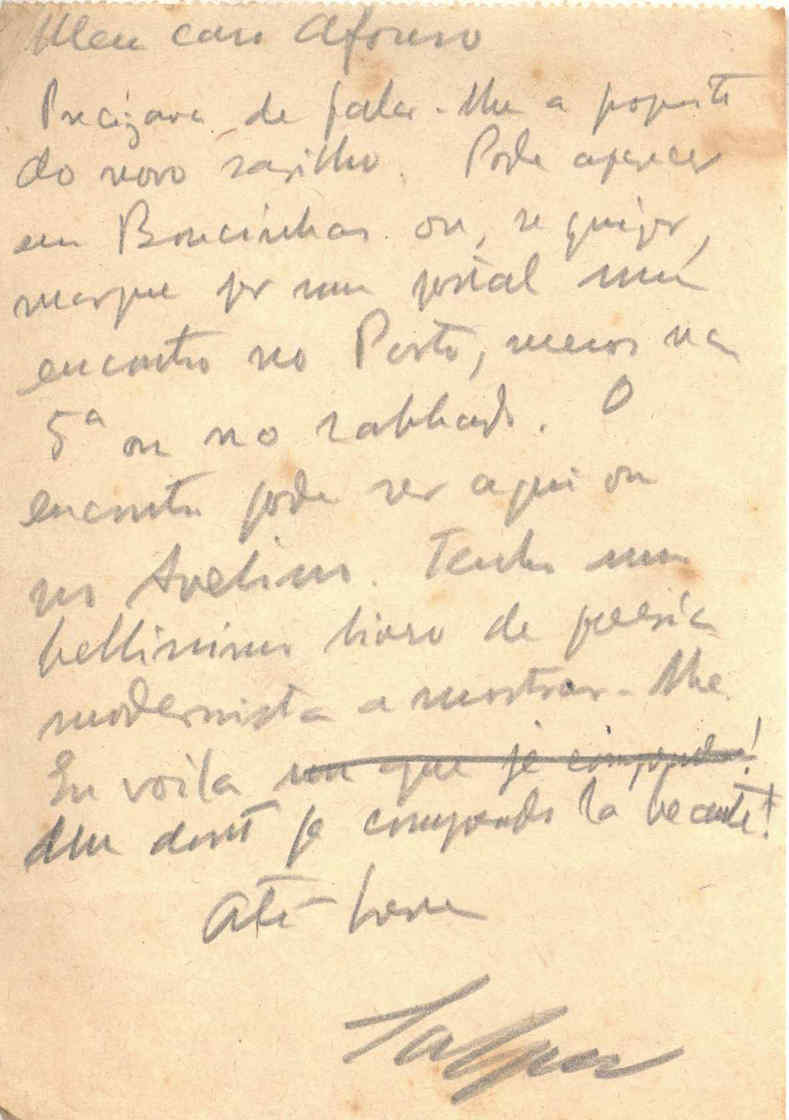 Meu caro Afonso
Precizava de falar-lhe a proposito
do novo sarilho. Pode aparecer
em Boucinhas ou, se quizer,
marque por um postal um
encontro no Porto, menos na
5ª ou no sabbado. O
encontro pode ser aqui ou
no Avelino. Tenho um
bellissimo livro de poesia
modernista a mostrar-lhe.
En voila un que je comprends!
dont je comprends la beauté!
Até breve